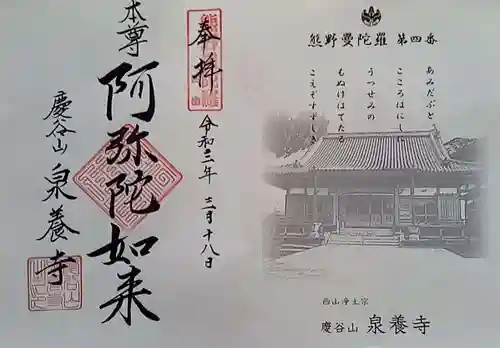 熊野曼陀羅 第四番
あみだぶと
こころはにしに
うつせみの
もぬけはてたる
こえぞすずしき
西山浄土宗
慶谷山 泉養寺
奉拝
令和三年 十二月十八日
本尊 阿弥陀如来
慶谷山 泉養寺